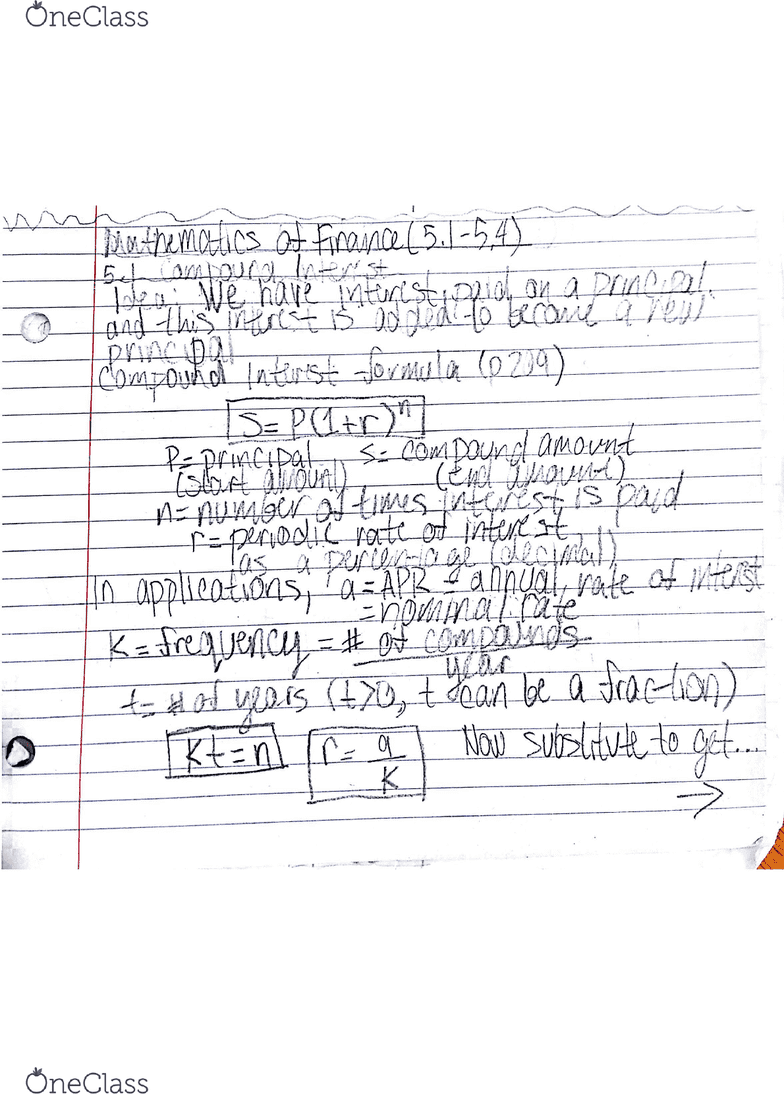 OneClass
Mathematics of Finance (5.1-5.4)
5.1 Compound Interest
Idea: We have interest paid on a principal,
and this interest is added to become a new
principal
Compound Interest formula (p209)
S= P(1+r)^n
P= principal S= compound amount
(start amount) (end amount)
n= number of times interest is paid
r= periodic rate of interest,
(as a percentage (decimal)
In applications, a = APR = annual rate of interest
= nominal rate
K = frequency = # of compounds
year
t= # of years (t>0, t can be a fraction)
Kt = n r = a/K Now substitute to get...
→
OneClass